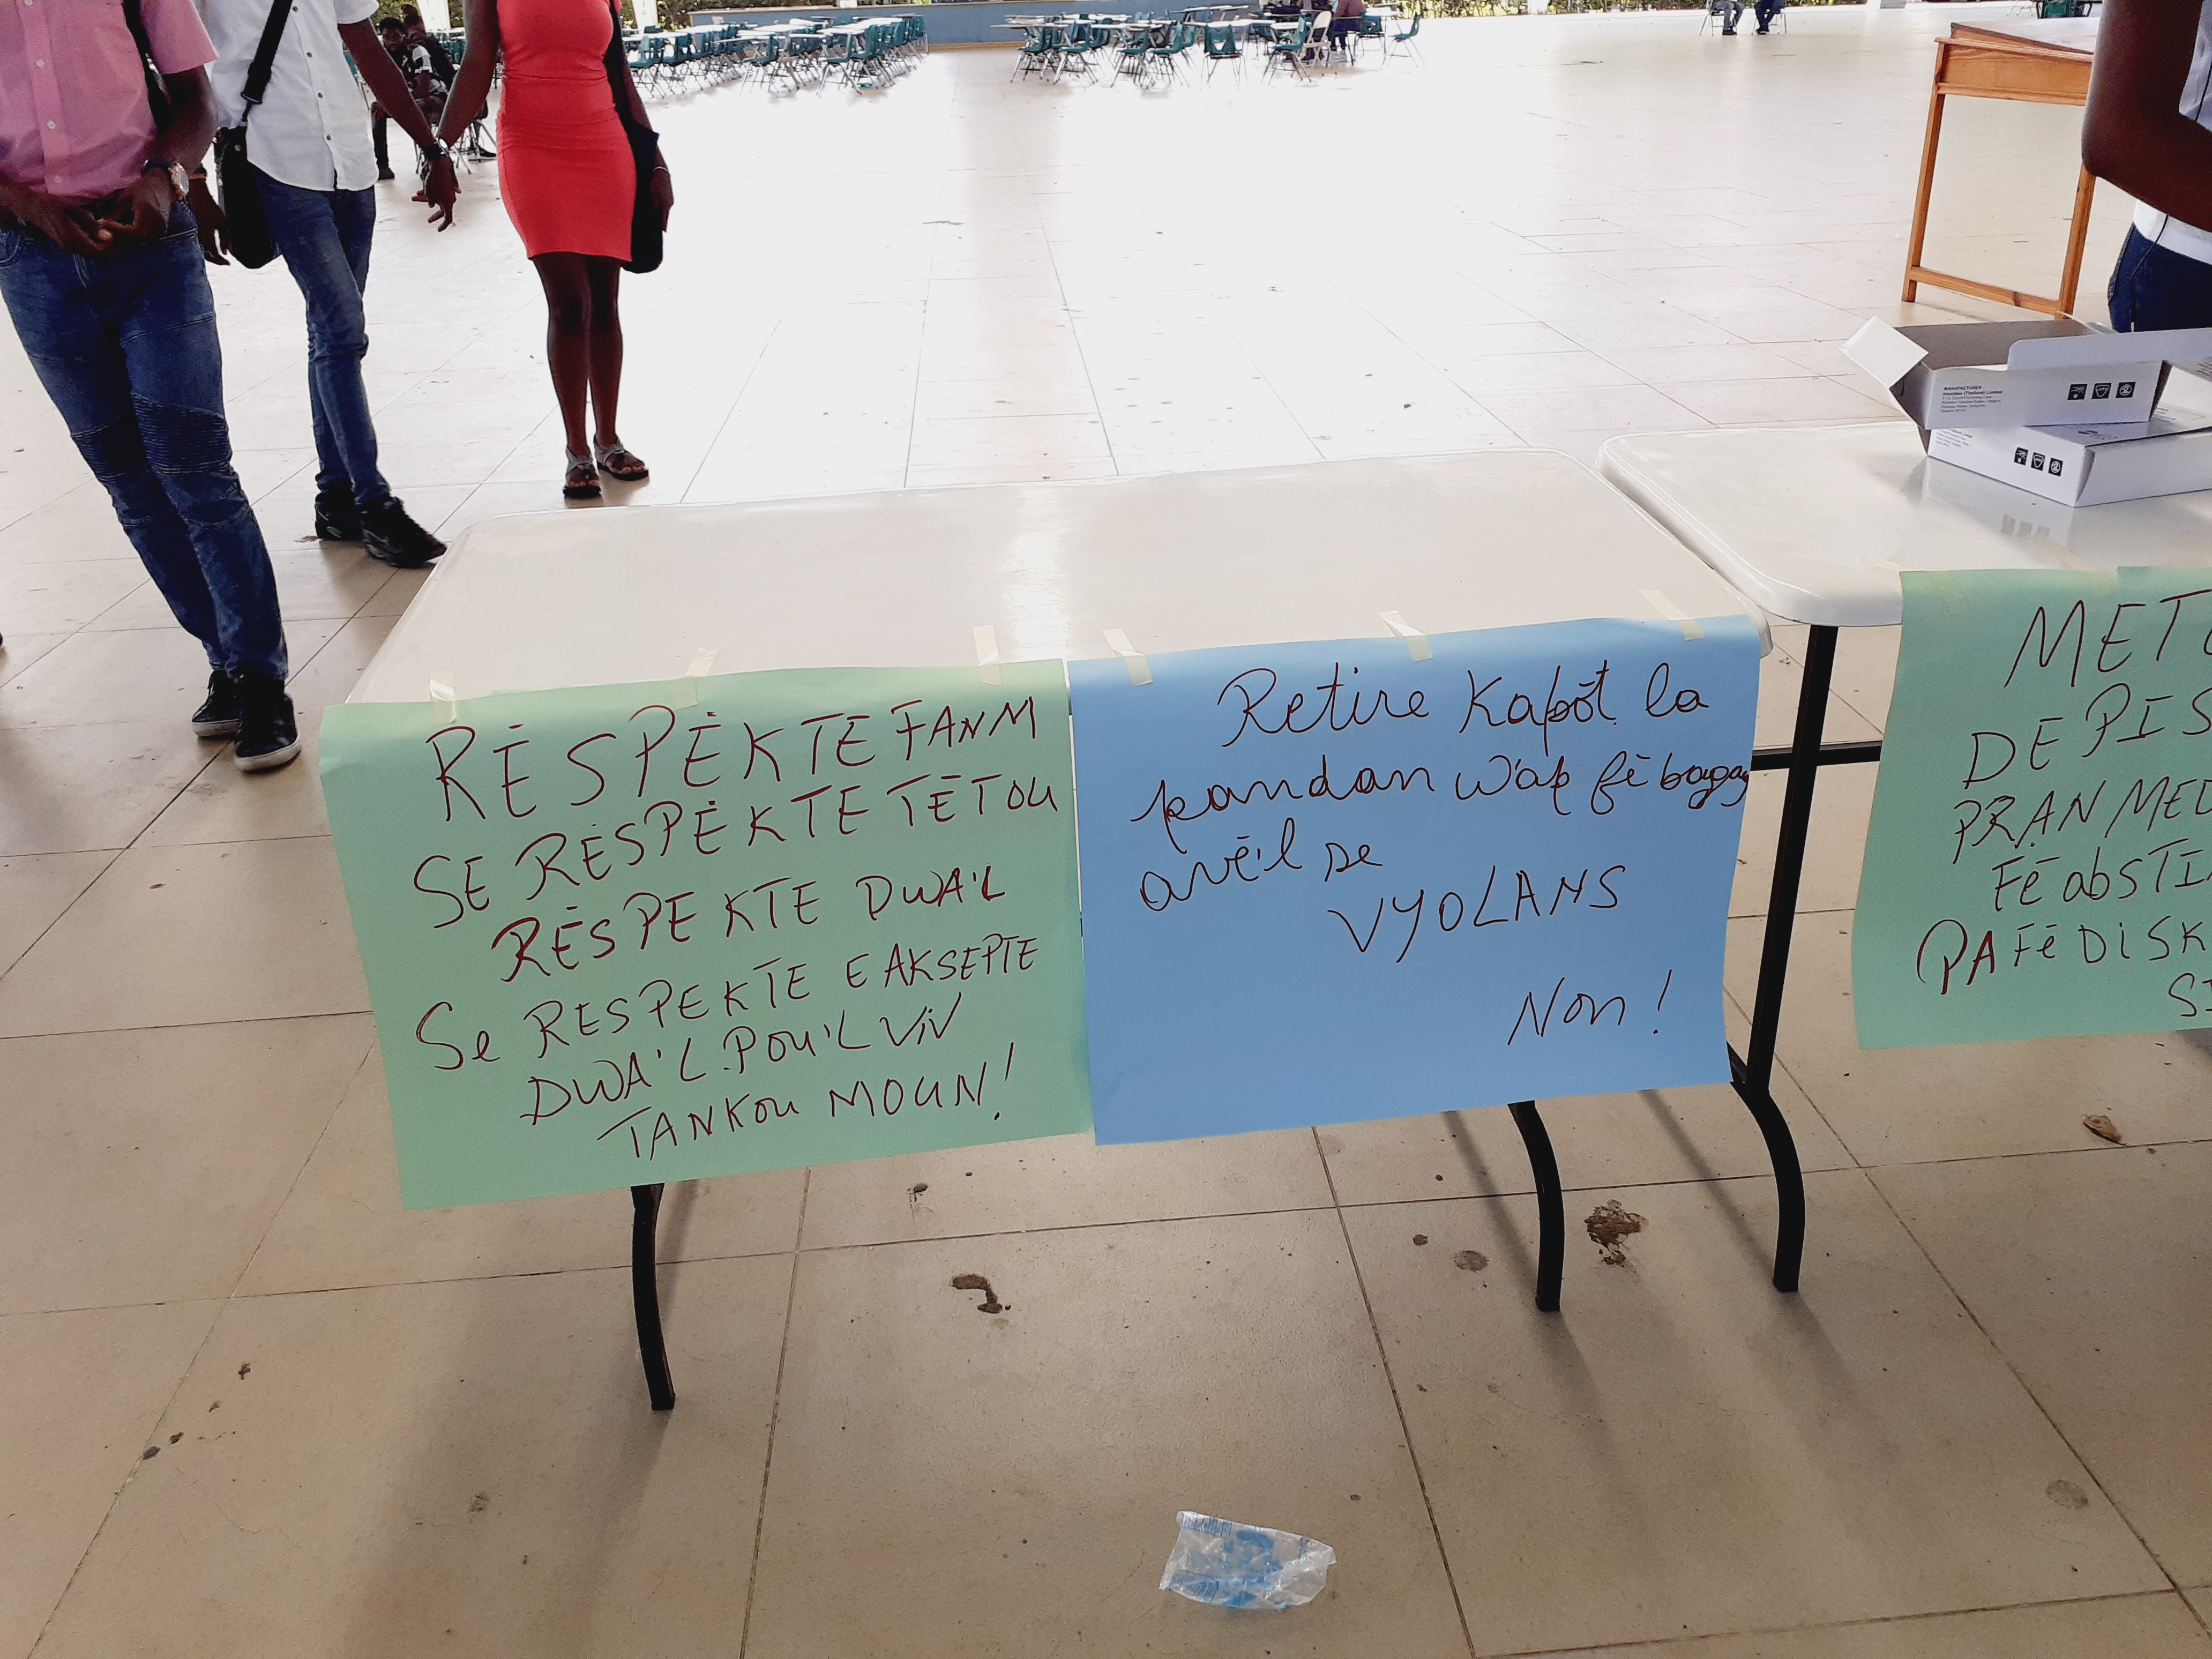 RÈSPÈKTE FANM
SE RÈSPÈKTE TÈT OU
RÈSPEKTE DWA'L
Se RESPEKTE E AKSEPTE
DWA'L POU'L VIV
TANKOU MOUN!
Retire Kapòt la
pandan w'ap fè bagay
avè'l se
VYOLANS
Non!
DEPIS
PRAN MED
Fè abSTI
PA Fè DiSK
MANUFACTURER